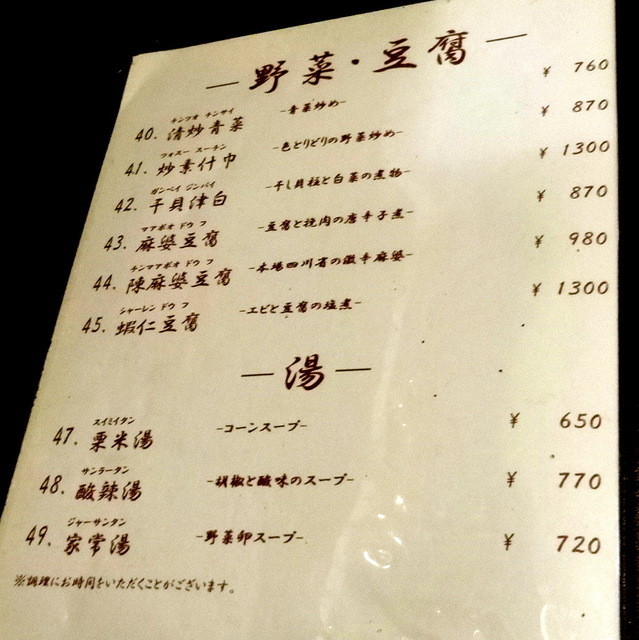 — 野菜・豆腐 —
チンツァオ チンサイ
40. 清炒青菜 -青菜炒め- ¥ 760
ツォスー スーチン
41. 炒素什巾 -色とりどりの野菜炒め- ¥ 870
ガンベイ ジンバイ
42. 干貝津白 -干し貝柱と白菜の煮物- ¥ 1300
マアボオ ドウ フ
43. 麻婆豆腐 -豆腐と挽肉の唐辛子煮- ¥ 870
チンマアボオ ドウ フ
44. 陳麻婆豆腐 -本場四川省の激辛麻婆- ¥ 980
シャーレン ドウ フ
45. 蝦仁豆腐 -エビと豆腐の塩煮- ¥ 1300
— 湯 —
スイミイタン
47. 粟米湯 -コーンスープ- ¥ 650
サンラータン
48. 酸辣湯 -胡椒と酸味のスープ- ¥ 770
ジャーサンタン
49. 家常湯 -野菜卵スープ- ¥ 720
※調理にお時間をいただくことがございます。